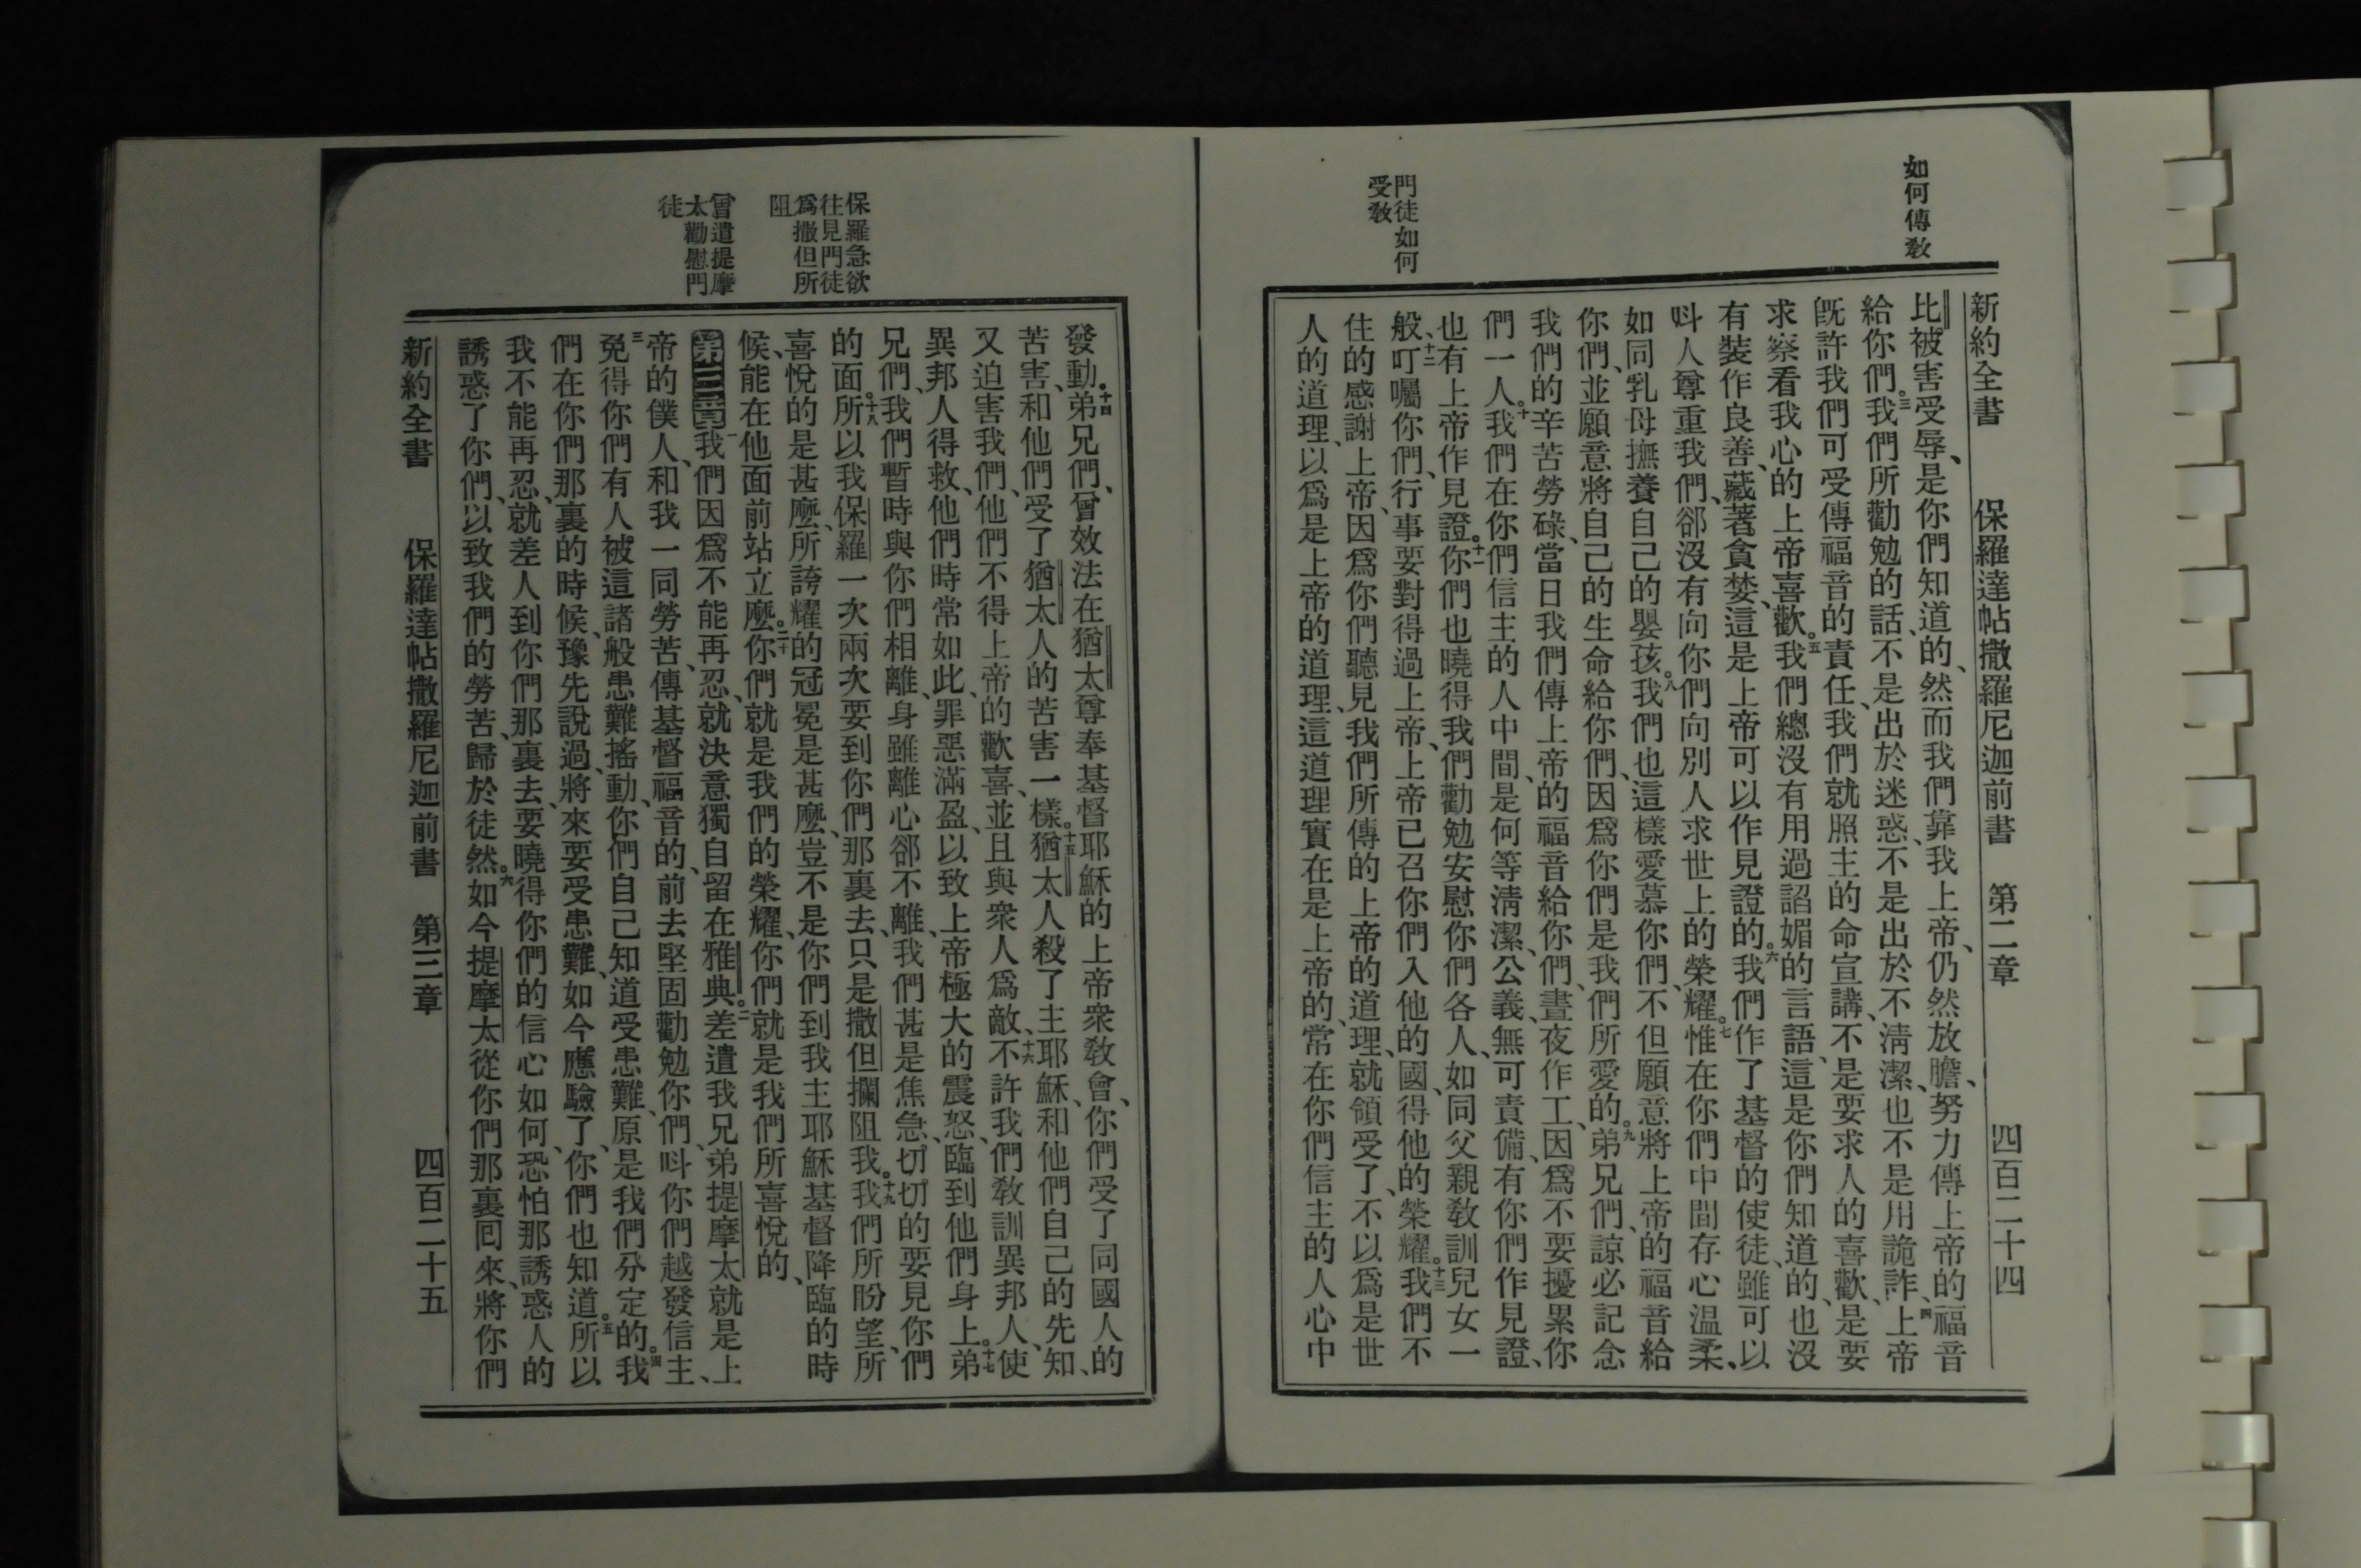 如何傳敎
門徒如何
受敎
新約全書 保羅達帖撒羅尼迦前書 第二章 四百二十四
比被害受辱、是你們知道的、然而我們靠我上帝、仍然放膽、努力傳上帝的福音
給你們。三我們所勸勉的話、不是出於迷惑、不是出於不淸潔、也不是用詭詐、四上帝
旣許我們可受傳福音的責任、我們就照主的命宣講、不是要求人的喜歡、是要
求察看我心的上帝喜歡。五我們總沒有用過諂媚的言語、這是你們知道的、也沒
有裝作良善、藏著貪婪、這是上帝可以作見證的。六我們作了基督的使徒、雖可以
呌人尊重我們、郤沒有向你們向別人求世上的榮耀。七惟在你們中間存心溫柔、
如同乳母撫養自己的嬰孩。八我們也這樣愛慕你們、不但願意將上帝的福音給
你們、並願意將自己的生命給你們、因爲你們是我們所愛的。九弟兄們、諒必記念
我們的辛苦勞碌、當日我們傳上帝的福音給你們、晝夜作工、因爲不要擾累你
們一人。十我們在你們信主的人中間、是何等淸潔、公義、無可責備、有你們作見證、
也有上帝作見證。十一你們也曉得我們勸勉安慰你們各人、如同父親敎訓兒女一
般、十二叮囑你們、行事要對得過上帝、上帝已召你們入他的國、得他的榮耀。十三我們不
住的感謝上帝、因爲你們聽見我們所傳的上帝的道理、就領受了、不以爲是世
人的道理、以爲是上帝的道理、這道理實在是上帝的、常在你們信主的人心中
保羅急欲
往見門徒
爲撒但所
阻
曾遣提摩
太勸慰門
徒
發動。十四弟兄們、曾效法在猶太尊奉基督耶穌的上帝衆敎會、你們受了同國人的
苦害、和他們受了猶太人的苦害一樣。十五猶太人殺了主耶穌、和他們自己的先知、
又迫害我們、他們不得上帝的歡喜、並且與衆人爲敵、十六不許我們敎訓異邦人、使
異邦人得救、他們時常如此、罪惡滿盈、以致上帝極大的震怒、臨到他們身上。十七弟
兄們、我們暫時與你們相離、身雖離心郤不離、我們甚是焦急、切切的要見你們
的面。十八所以我保羅一次兩次要到你們那裏去、只是撒但攔阻我。十九我們所盼望、所
喜悅的是甚麽、所誇耀的冠冕是甚麽、豈不是你們到我主耶穌基督降臨的時
候、能在他面前站立麽。二十你們就是我們的榮耀、你們就是我們所喜悅的、
第三章一我們因爲不能再忍、就決意獨自留在雅典。二差遣我兄弟提摩太就是上
帝的僕人、和我一同勞苦、傳基督福音的、前去堅固勸勉你們、呌你們越發信主、
三免得你們有人被這諸般患難搖動、你們自己知道受患難、原是我們分定的。四我
們在你們那裏的時候、豫先說過、將來要受患難、如今應驗了、你們也知道。五所以
我不能再忍、就差人到你們那裏去、要曉得你們的信心如何、恐怕那誘惑人的
誘惑了你們、以致我們的勞苦、歸於徒然。六如今提摩太從你們那裏回來、將你們
新約全書 保羅達帖撒羅尼迦前書 第三章 四百二十五